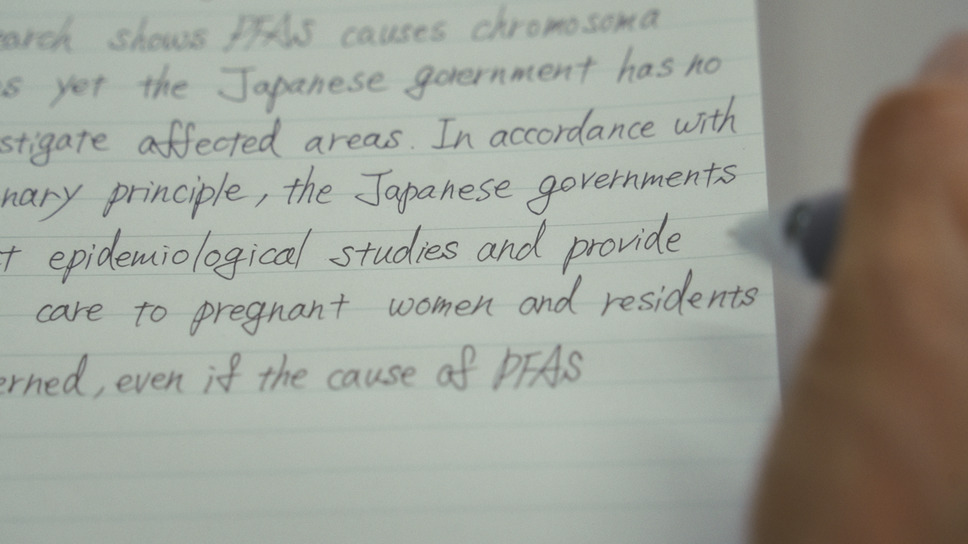 earch shows PFAS causes chromosoma
s yet the Japanese government has no
stigate affected areas. In accordance with
nary principle, the Japanese governments
t epidemiological studies and provide
care to pregnant women and residents
erned, even if the cause of PFAS